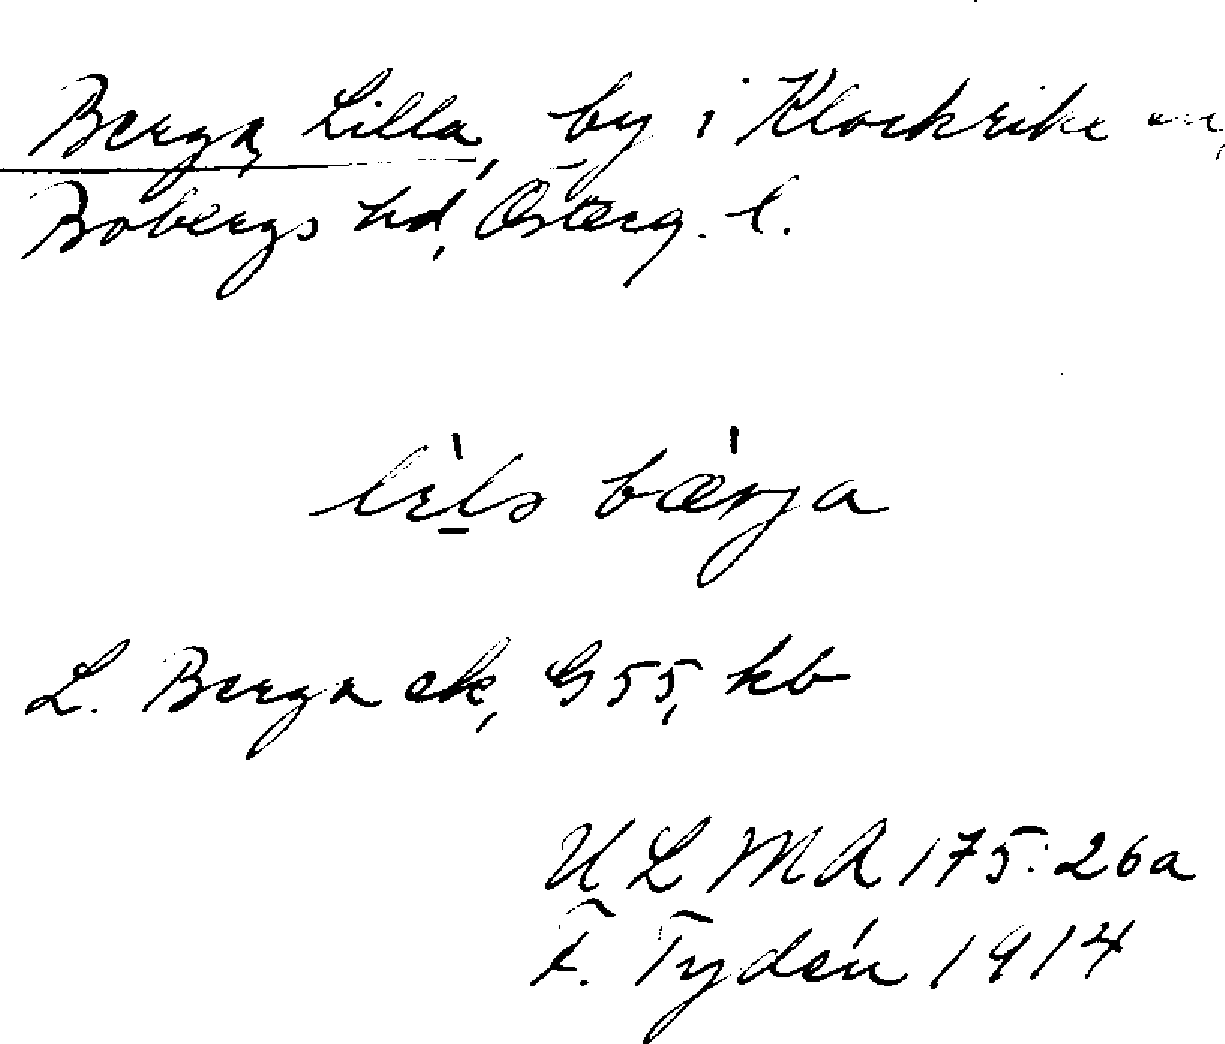 Berga, Lilla, by i Klockrike sn,
Bobergs hd, Österg. l.
bærja
L. Berga ek, G 55, kb
ULMA 175:26a
F. Tydén 1914